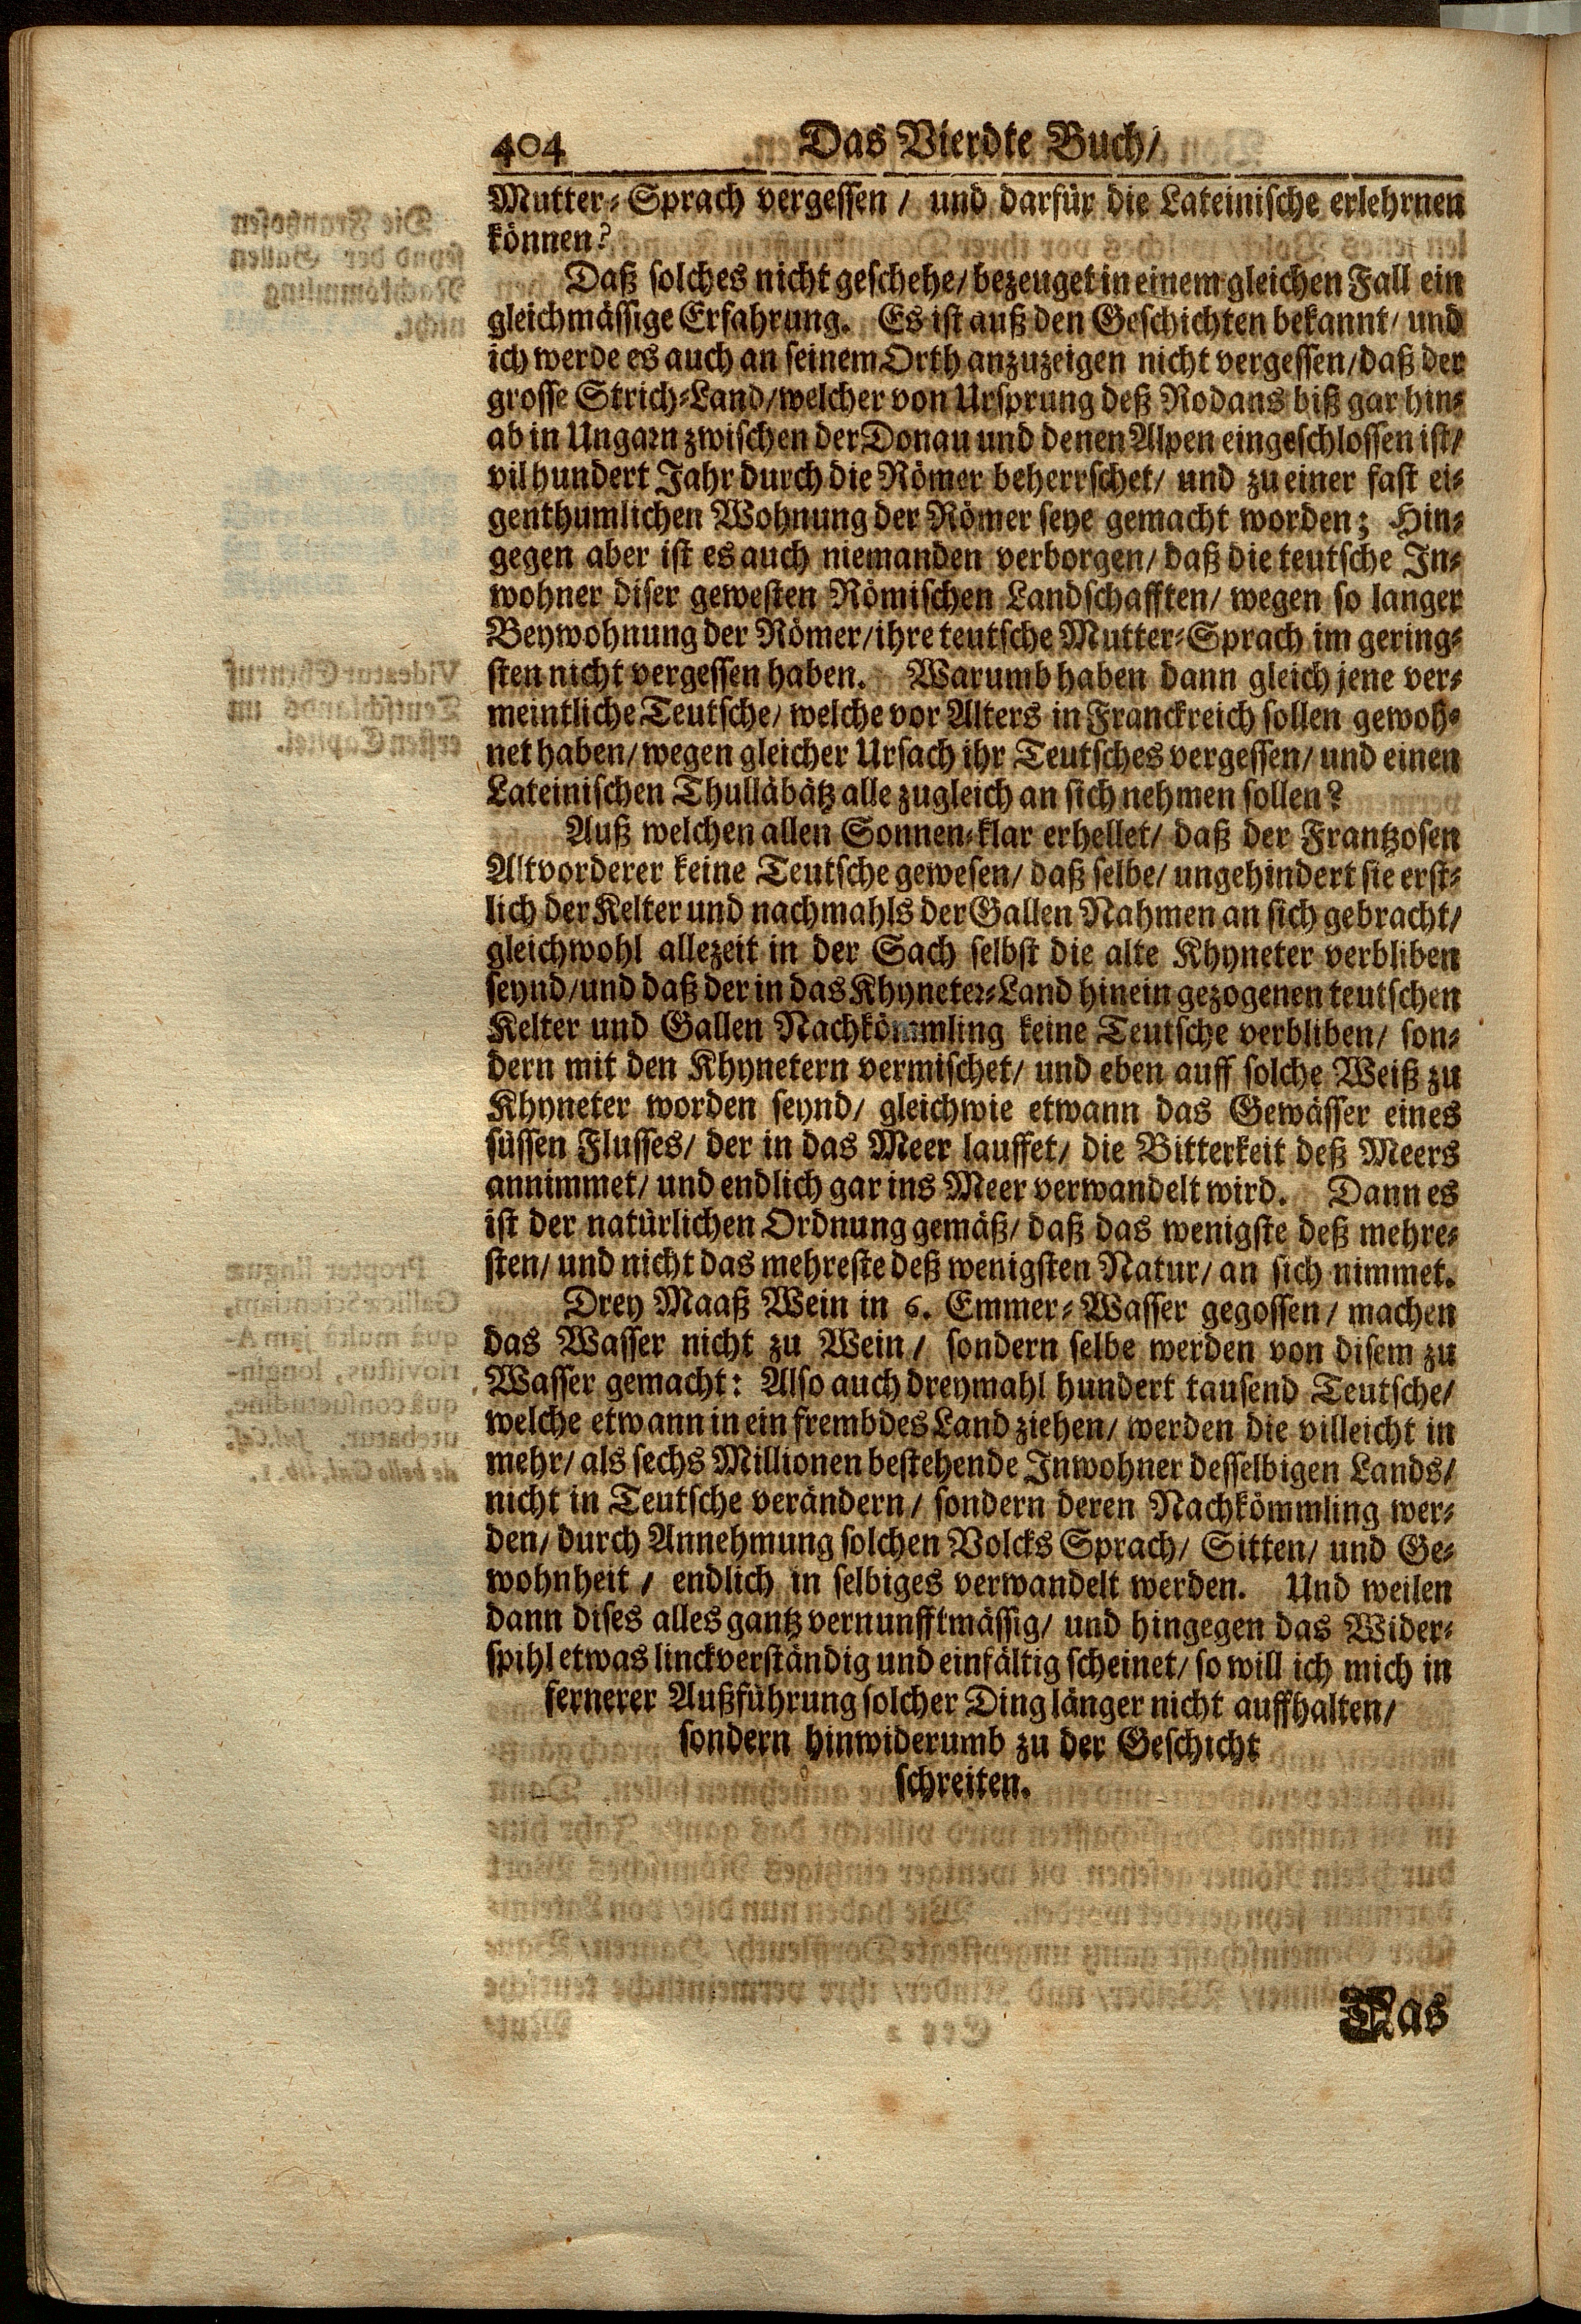 404 Das Vierdte Buch/
Mutter-Sprach vergessen / und darfür die Lateinische erlehrnen
können?
Daß solches nicht geschehe/ bezeuget in einem gleichen Fall ein
gleichmässige Erfahrung. Es ist auß den Geschichten bekannt/ und
ich werde es auch an seinem Orth anzuzeigen nicht vergessen/ daß der
grosse Strich-Land/ welcher von Ursprung deß Rodans biß gar hin-
ab in Ungarn zwischen der Donau und denen Alpen eingeschlossen ist/
vil hundert Jahr durch die Römer beherrschet/ und zu einer fast ei-
genthumlichen Wohnung der Römer seye gemacht worden; Hin-
gegen aber ist es auch niemanden verborgen/ daß die teutsche In-
wohner diser gewesten Römischen Landschafften/ wegen so langer
Beywohnung der Römer/ ihre teutsche Mutter-Sprach im gering-
sten nicht vergessen haben. Warumb haben dann gleich jene ver-
meintliche Teutsche/ welche vor Alters in Franckreich sollen gewoh-
net haben/ wegen gleicher Ursach ihr Teutsches vergessen/ und einen
Lateinischen Thulläbätz alle zugleich an sich nehmen sollen?
Auß welchen allen Sonnen-klar erhellet/ daß der Frantzosen
Altvorderer keine Teutsche gewesen/ daß selbe/ ungehindert sie erst-
lich der Kelter und nachmahls der Gallen Nahmen an sich gebracht/
gleichwohl allezeit in der Sach selbst die alte Khyneter verbliben
seynd/ und daß der in das Khyneter-Land hinein gezogenen teutschen
Kelter und Gallen Nachkömmling keine Teutsche verbliben/ son-
dern mit den Khynetern vermischet/ und eben auff solche Weiß zu
Khyneter worden seynd/ gleichwie etwann das Gewässer eines
süssen Flusses/ der in das Meer lauffet/ die Bitterkeit deß Meers
annimmet/ und endlich gar ins Meer verwandelt wird. Dann es
ist der natürlichen Ordnung gemäß/ daß das wenigste deß mehre-
sten/ und nicht das mehreste deß wenigsten Natur/ an sich nimmet.
Drey Maaß Wein in 6. Emmer-Wasser gegossen/ machen
das Wasser nicht zu Wein / sondern selbe werden von disem zu
Wasser gemacht: Also auch dreymahl hundert tausend Teutsche/
welche etwann in ein frembdes Land ziehen/ werden die villeicht in
mehr/ als sechs Millionen bestehende Inwohner desselbigen Lands/
nicht in Teutsche verändern/ sondern deren Nachkömmling wer-
den/ durch Annehmung solchen Volcks Sprach/ Sitten/ und Ge-
wohnheit / endlich in selbiges verwandelt werden. Und weilen
dann dises alles gantz vernunfftmässig/ und hingegen das Wider-
spihl etwas linckverständig und einfältig scheinet/ so will ich mich in
fernerer Außführung solcher Ding länger nicht auffhalten/
sondern hinwiderumb zu der Geschicht
schreiten.
Das